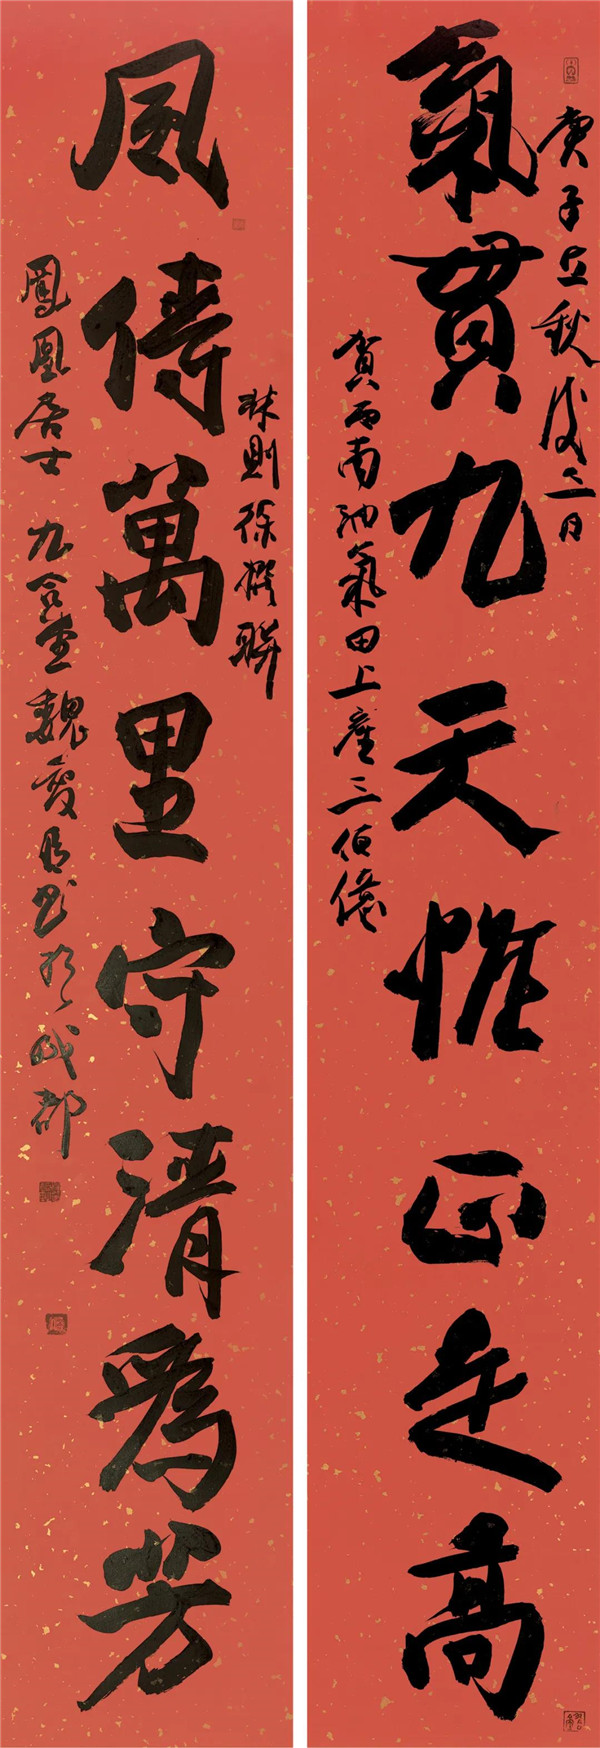 庚子立秋後二日
氣貫九天惟正高
賀西南油氣田上產三佰億
林則徐撰聯
風傳萬里守清為芳
鳳凰居士九合堂魏書於成都